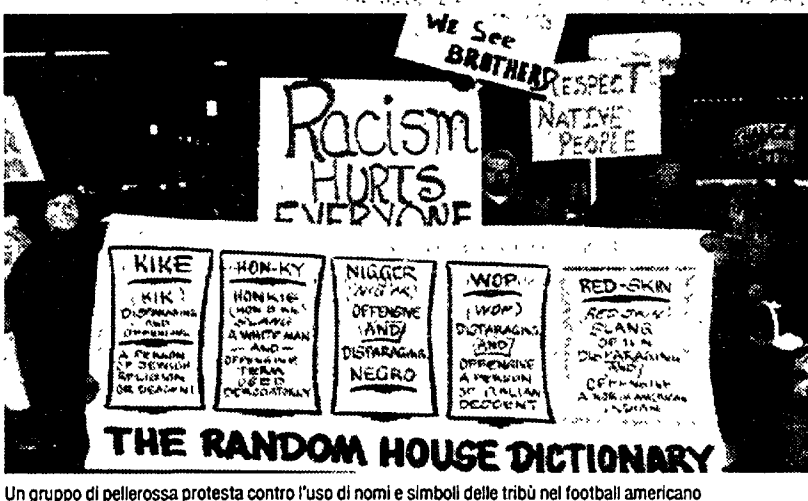 WE SEE
BROTHERS
RESPECT
NATIVE
PEOPLE
Racism
HURTS
EVERYONE
KIKE
(KIK)
DISPARAGING
AND
OFFENSIVE
A PERSON
OF JEWISH
RELIGION
OR DESCENT
HON-KY
HONKIE
SLANG
A WHITE MAN
AND
OFFENSIVE
TERM
USED
DEROGATORILY
NIGGER
OFFENSIVE
AND
DISPARAGING
NEGRO
WOP
(WOP)
DISPARAGING
AND
OFFENSIVE
A PERSON
OF ITALIAN
DESCENT
RED-SKIN
RED-SKIN
SLANG
OFTEN
DISPARAGING
AND
OFFENSIVE
A NORTH AMERICAN
INDIAN
THE RANDOM HOUSE DICTIONARY
Un gruppo di pellerossa protesta contro l'uso di nomi e simboli delle tribù nel football americano